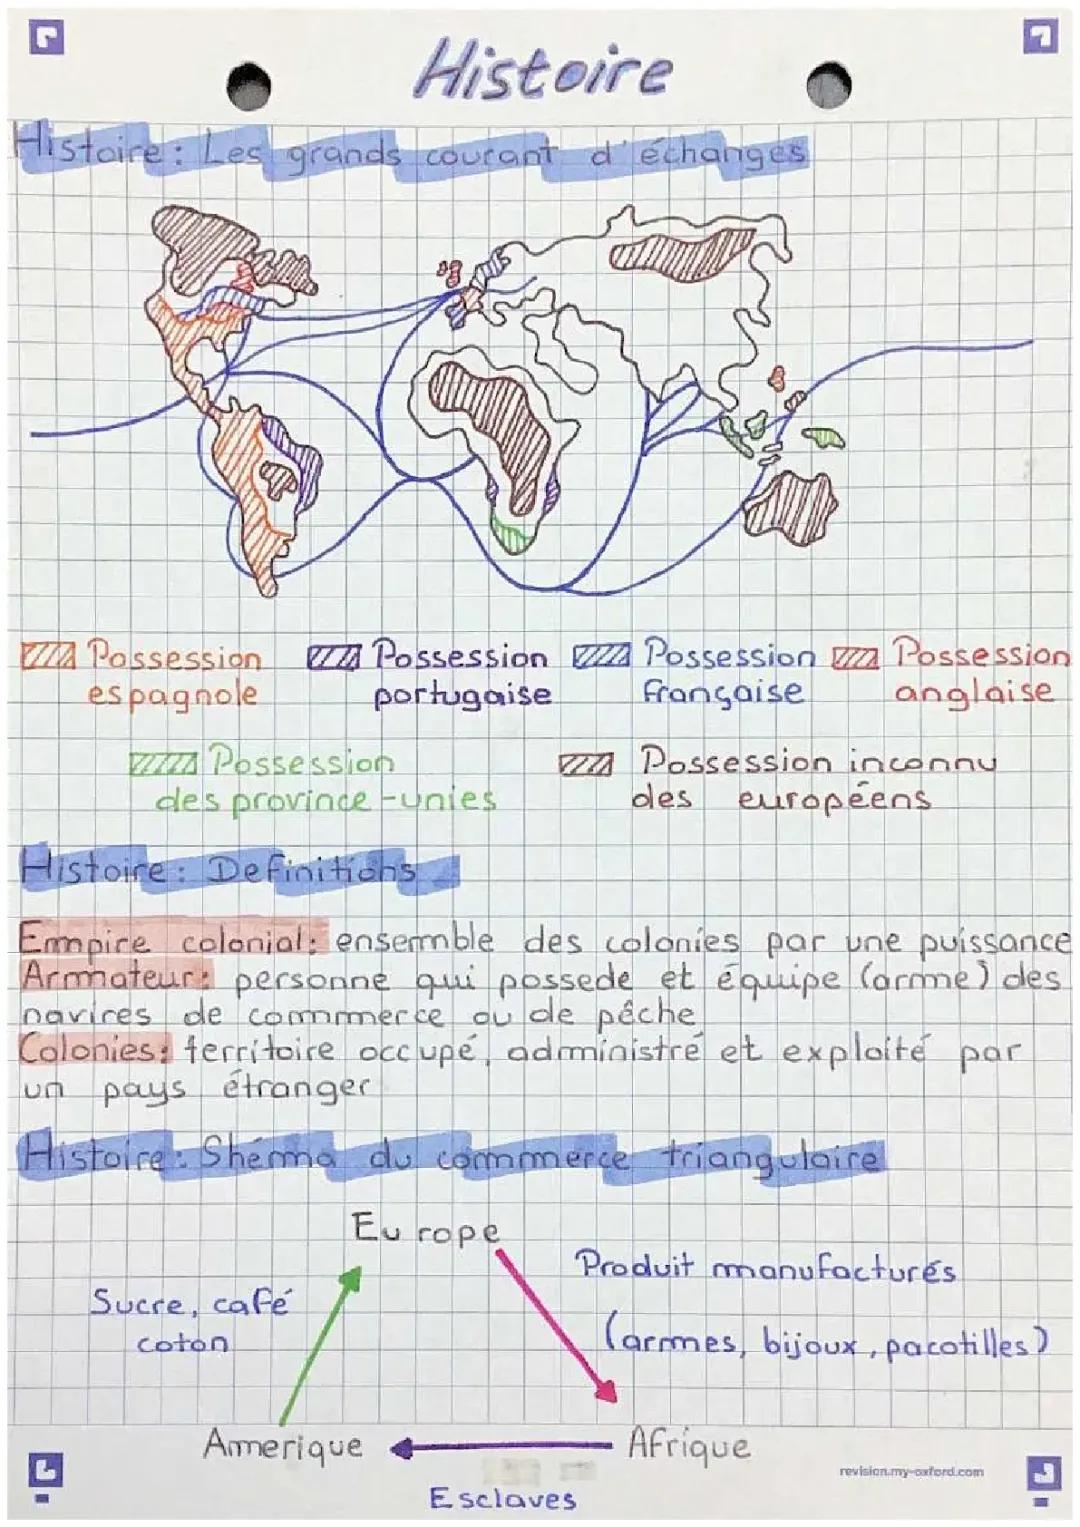 Histoire
Histoire: Les grands courant d'échanges
Possession espagnole
Possession portugaise
Possession française
Possession anglaise
Possession des province-unies
Possession inconnu des européens
Histoire: Definitions
Empire colonial: ensemble des colonies par une puissance
Armateur: personne qui possede et équipe (arme) des
navires de commerce ou de pêche
Colonies: territoire occupé, administré et exploité par
un pays étranger
Histoire: Shéma du commerce triangulaire
Europe
Produit manufacturés
Sucre, café
coton
(armes, bijoux, pacotilles)
Amerique
Afrique
revision.my-oxford.com
Esclaves